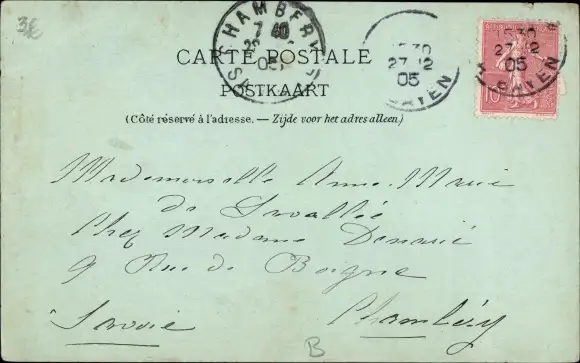 3€
CHAMBERY
7 40
05
SAVOIE
15 30
27 12
05
15 30
27 12
05
10
CARTE POSTALE
POSTKAART
(Côté réservé à l'adresse. — Zijde voor het adres alleen.)
Mademoiselle Anne-Marie
de Lavallée
Chez Madame
9 Rue de Boigne
Savoie Chambéry
B